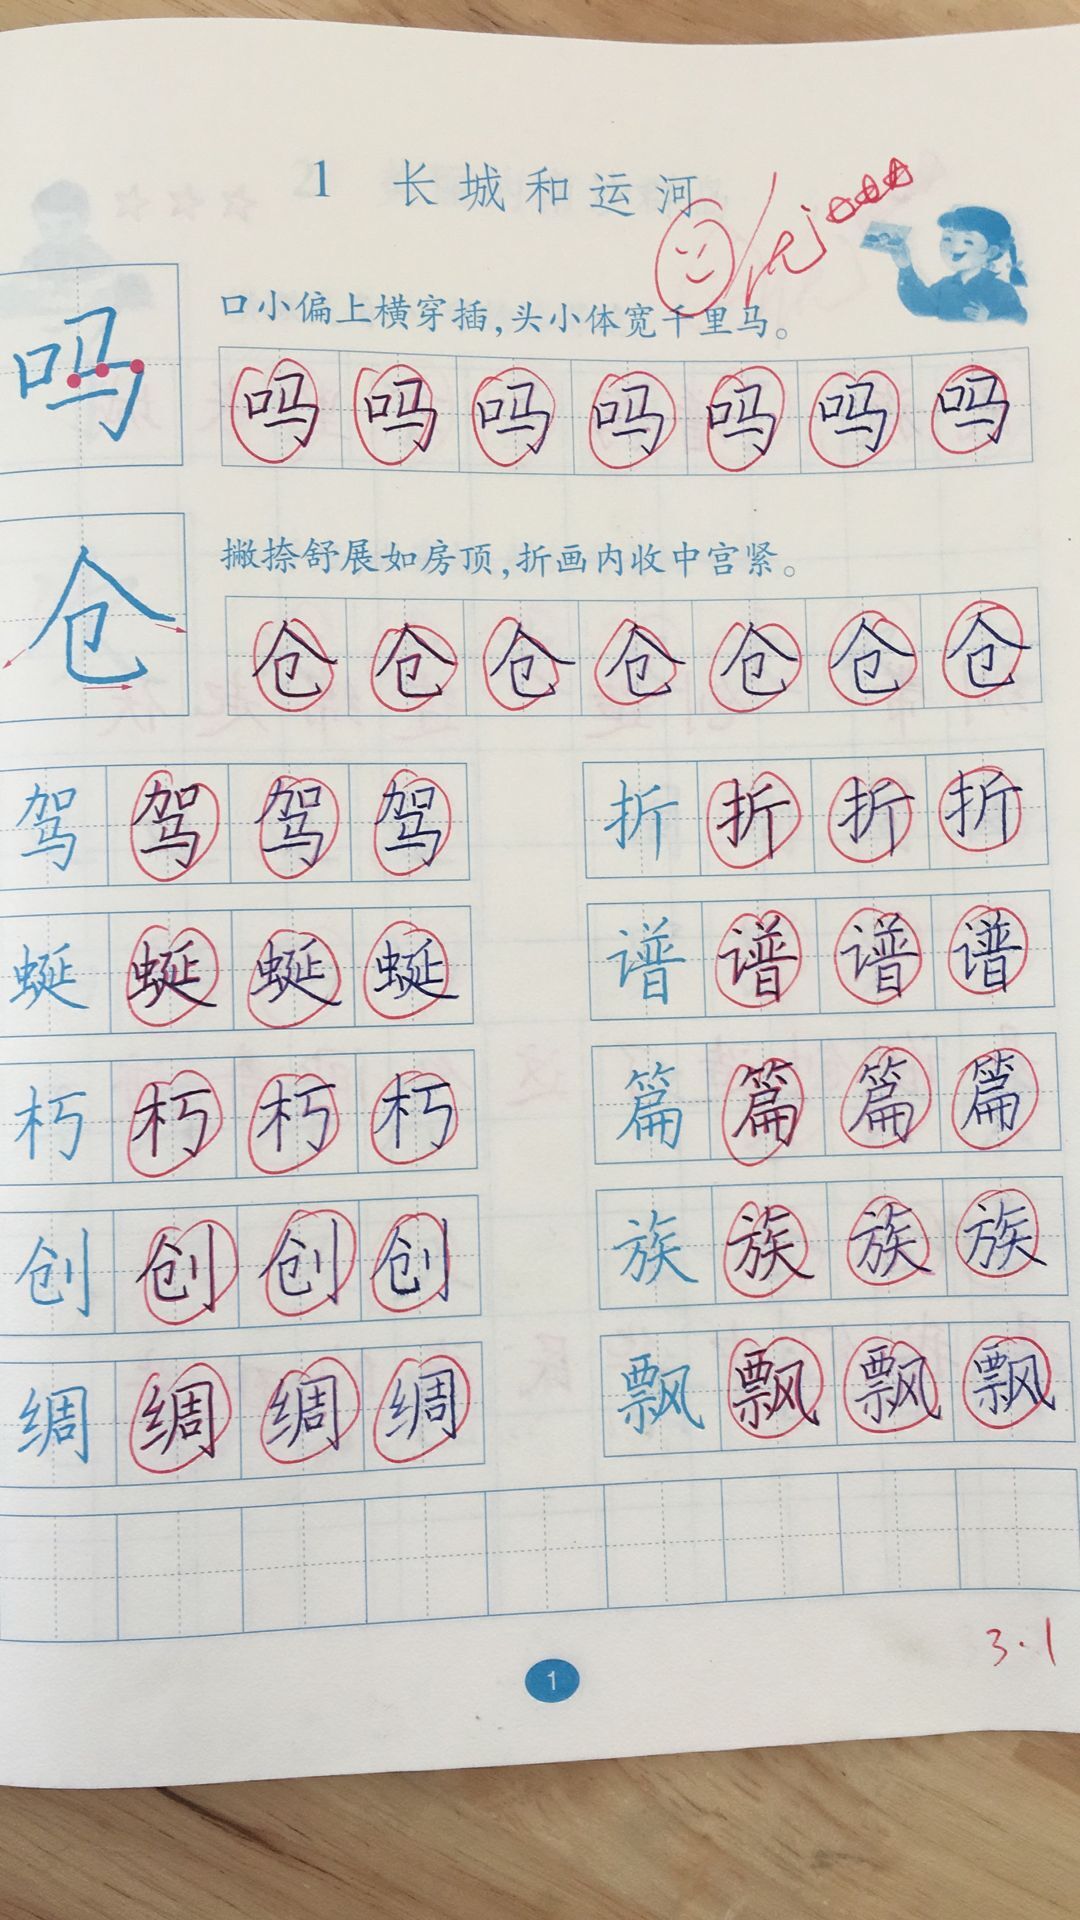 1 长城和运河
优
口小偏上横穿插,头小体宽千里马。
吗 吗 吗 吗 吗 吗 吗 吗
撇捺舒展如房顶,折画内收中宫紧。
仓 仓 仓 仓 仓 仓 仓 仓
驾 驾 驾 驾 折 折 折 折
蜒 蜒 蜒 蜒 谱 谱 谱 谱
朽 朽 朽 朽 篇 篇 篇 篇
创 创 创 创 族 族 族 族
绸 绸 绸 绸 飘 飘 飘 飘
3.1
1